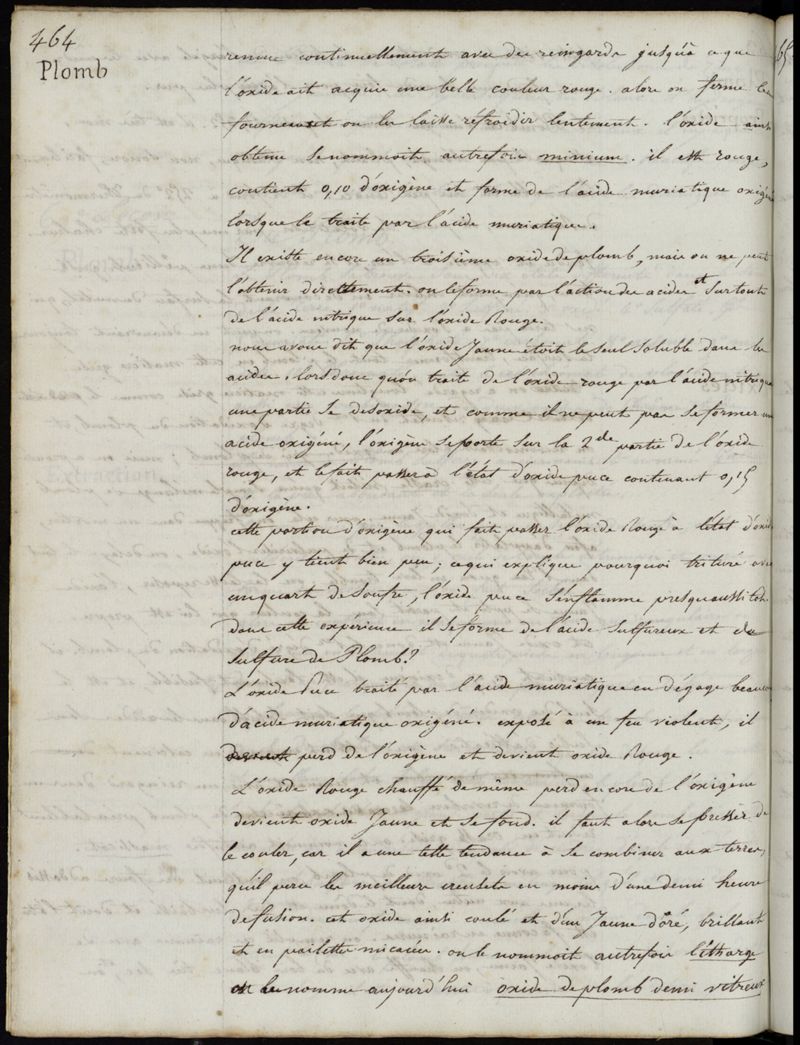 464
Plomb
remue continuellement avec des reingards jusqu'à ce que
l'oxide ait acquis une belle couleur rouge. alors on ferme les
fourneaux et on les laisse réfroidir lentement. l'oxide ainsi
obtenu se nommoit autrefois minium. il est rouge,
contient 0,10 d'oxigène et forme de l'acide muriatique oxigéné
lorsqu'on le traite par l'acide muriatique.
Il existe encore un troisième oxide de plomb, mais on ne peut
l'obtenir directtement. on le forme par l'action des acides et surtout
de l'acide nitrique sur l'oxide Rouge.
nous avons dit que l'oxide Jaune étoit le seul soluble dans les
acides. lors donc qu'on traite de l'oxide rouge par l'acide nitrique
une partie se desoxide, et comme il ne peut pas se former un
acide oxigéné, l'oxigène se porte sur la 2de partie de l'oxide
rouge, et le fait passer à l'état d'oxide puce contenant 0,15
d'oxigène.
cette portion d'oxigène qui fait passer l'oxide Rouge à l'état d'oxide
puce y tient bien peu; ce qui explique pourquoi trituré avec
un quart de soufre, l'oxide puce s'enflamme presqu'aussitôt.
dans cette expérience il se forme de l'acide sulfureux et du
sulfure de Plomb.
L'oxide Puce traité par l'acide muriatique en dégage beaucoup
d'acide muriatique oxigéné. exposé à un feu violent, il
devient perd de l'oxigène et devient oxide Rouge.
L'oxide Rouge chauffé de même perd encore de l'oxigène
devient oxide Jaune et se fond. il faut alors se presser de
le couler, car il a une telle tendance à se combiner aux terres,
qu'il perce les meilleurs creusets en moins d'une demi heure
de fusion. cet oxide ainsi coulé et d'un Jaune d'oré, brillant
et en pailettes micacées. on le nommoit autrefois litharge
on le nomme aujourd'hui oxide de plomb demi vitreux